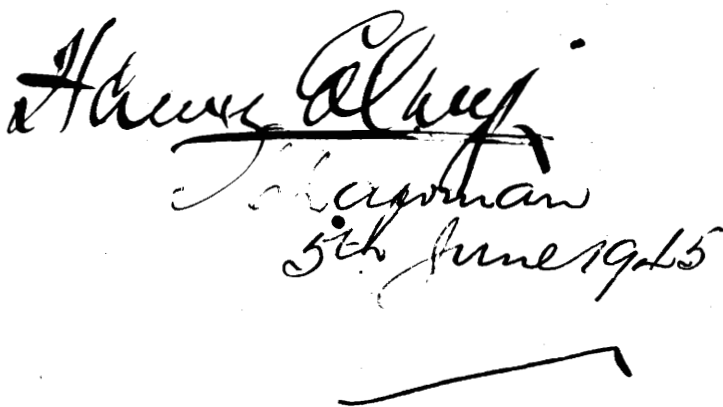 Harvey
Chairman
5th June 1945